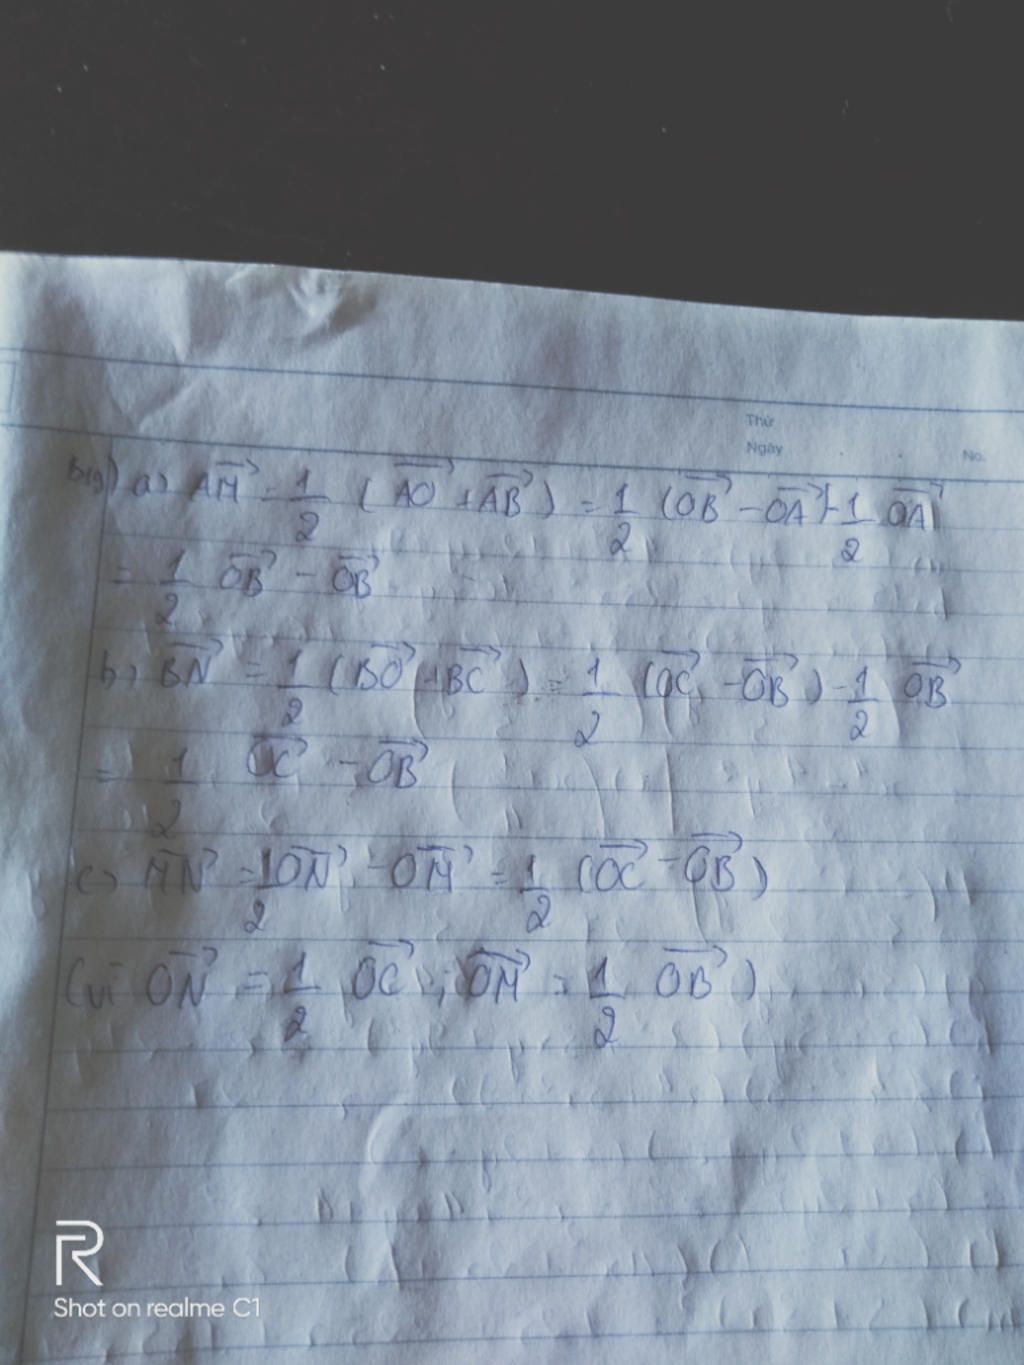 Thứ
Ngày
No.
a) AM⃗ = 1/2 (AO⃗ + AB⃗) = 1/2 (OB⃗ - OA⃗) - 1/2 OA⃗
= 1/2 OB⃗ - OB⃗
b) BN⃗ = 1/2 (BO⃗ + BC⃗) = 1/2 (OC⃗ - OB⃗) - 1/2 OB⃗
= 1/2 OC⃗ - OB⃗
c) MN⃗ = 1/2 ON⃗ - OM⃗ = 1/2 (OC⃗ - OB⃗)
(vì ON⃗ = 1/2 OC⃗ ; OM⃗ = 1/2 OB⃗)
R
Shot on realme C1